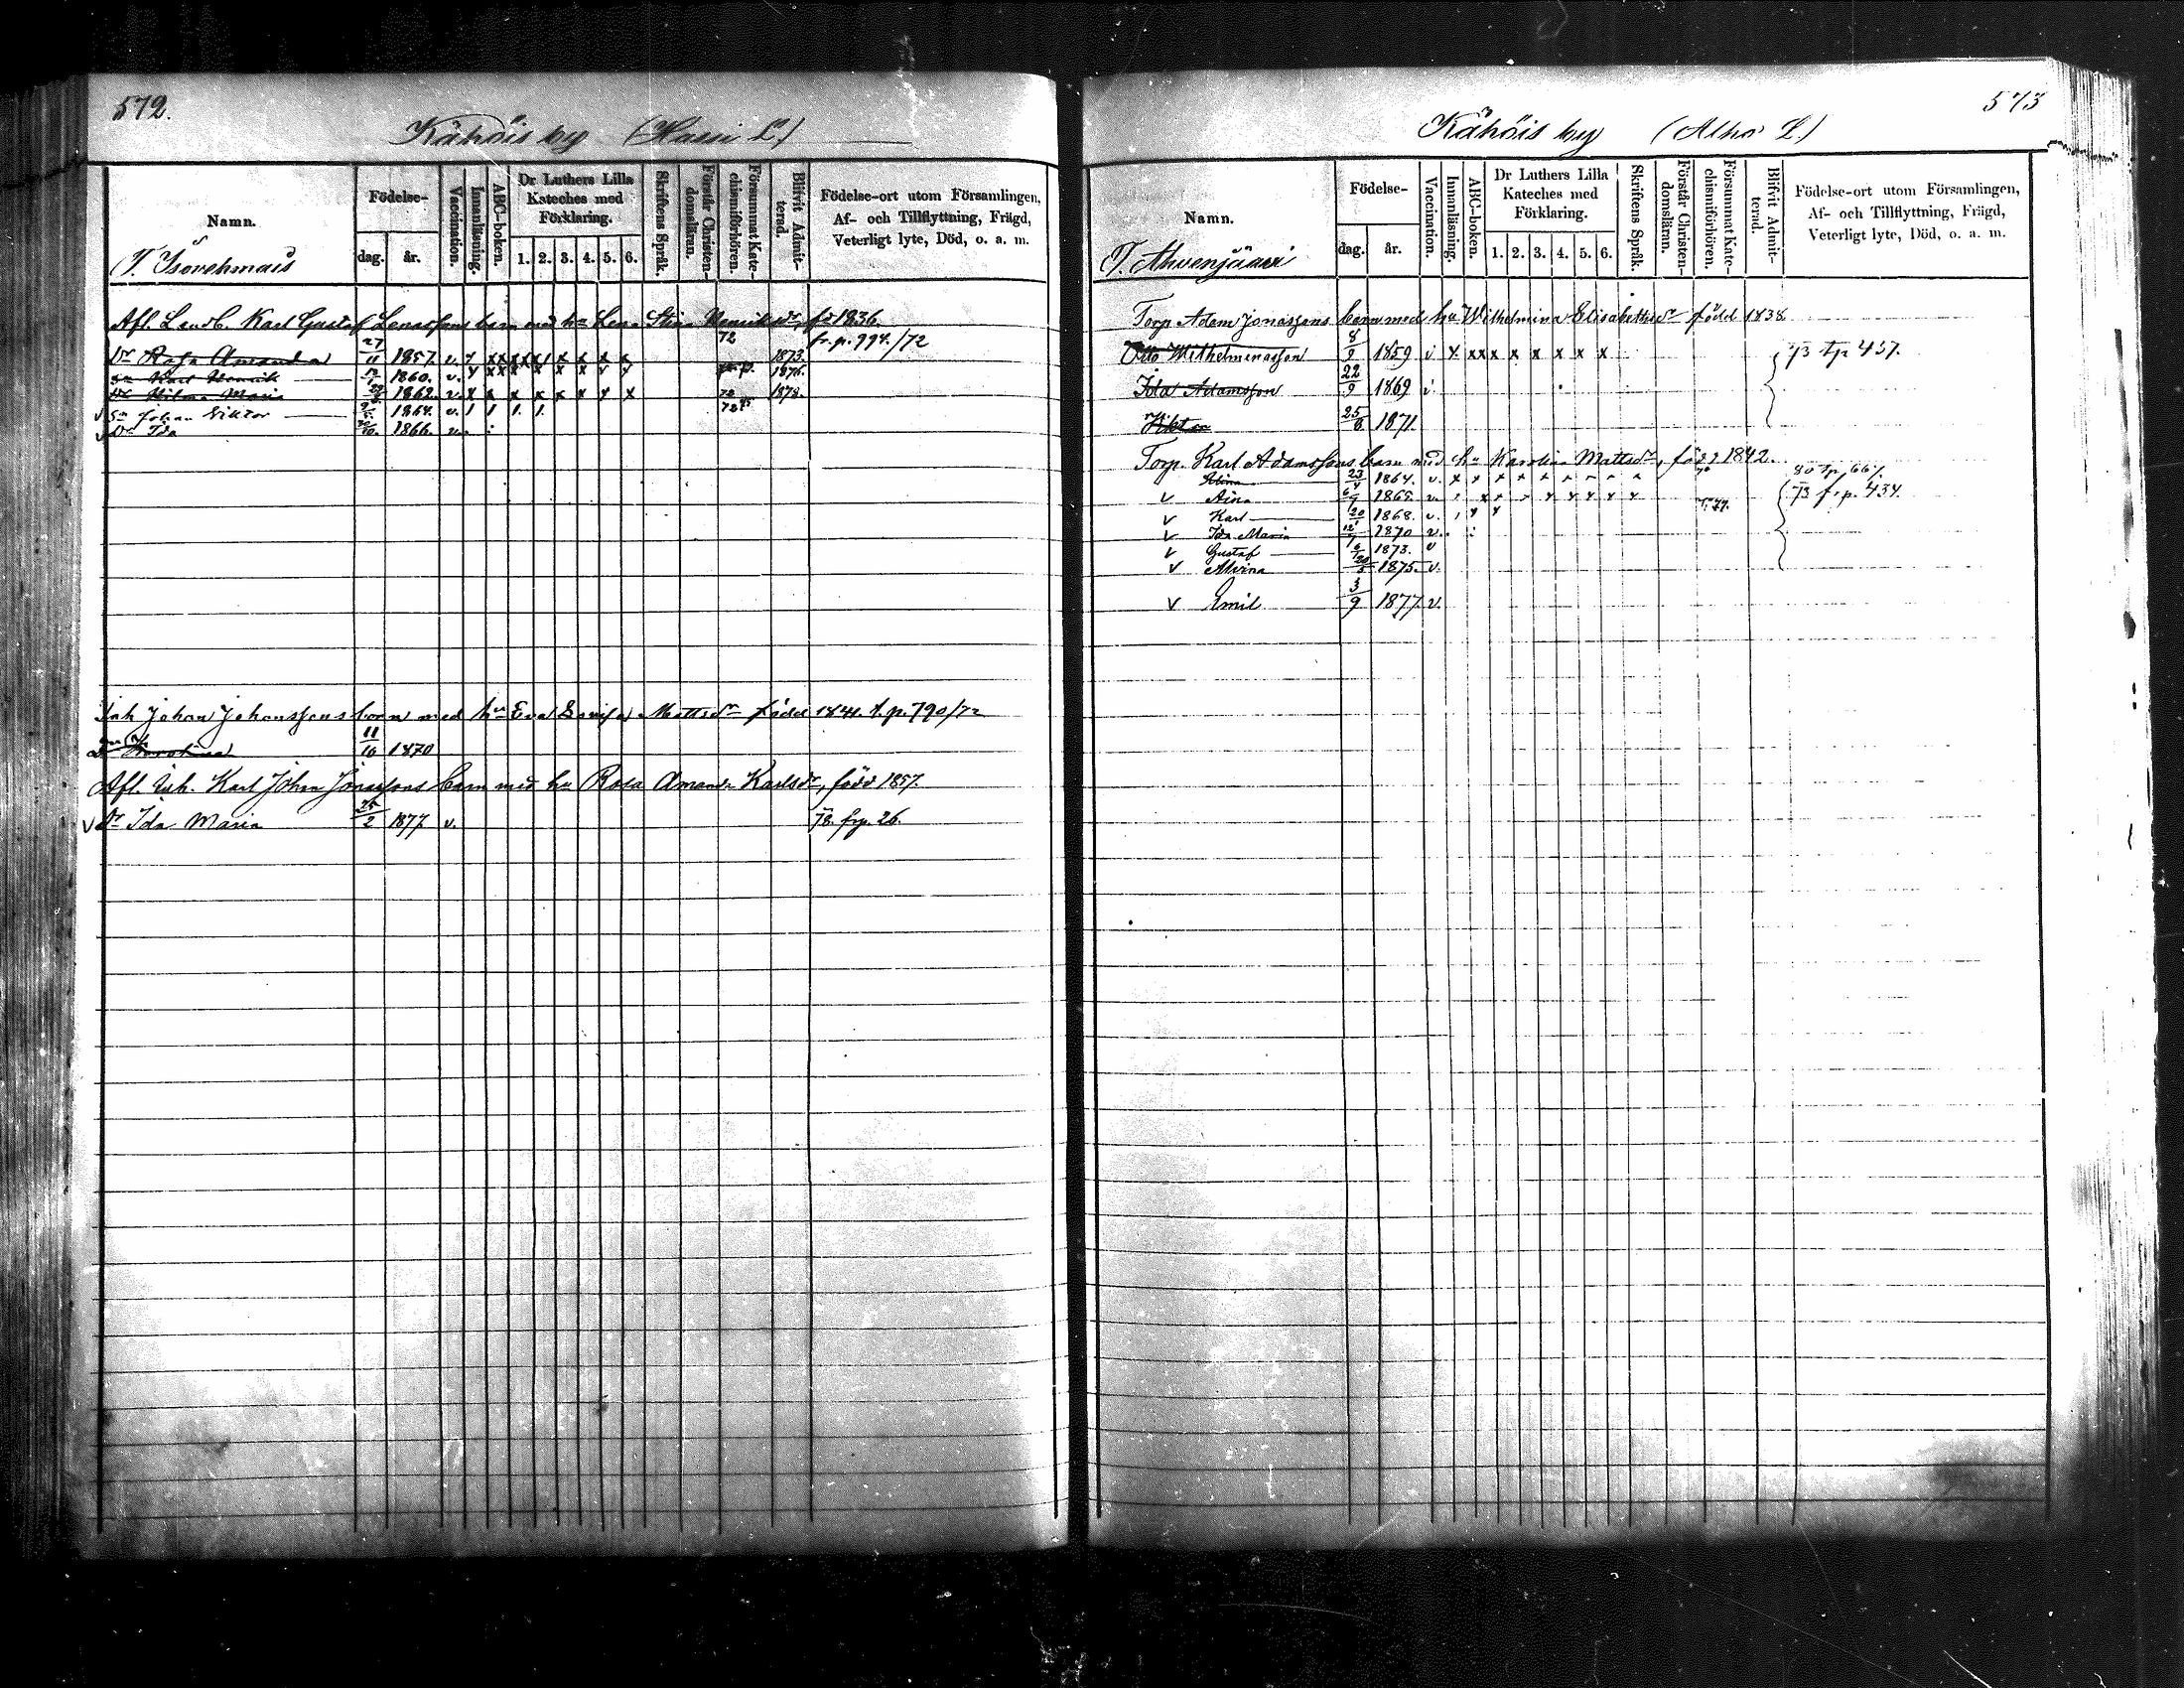 572.
Kähöis by (Hassi L.)
Namn.
Födelse-
dag.
år.
Vaccination.
Innanläsning.
ABC-boken.
Dr Luthers Lilla
Kateches med
Förklaring.
1. 2. 3. 4. 5. 6.
Skriftens Språk.
Förstår Christen-
domsläran.
Försummat Kate-
chismiförhören.
Blifvit Admit-
terad.
Födelse-ort utom Församlingen,
Af- och Tillflyttning, Frägd,
Veterligt lyte, Död, o. a. m.
T. Isovehmais
Afl. Landb. Karl Gustaf barn med hu Lena Stina Henriksdr, fd 1836.
72 fr. p. 994./72
Dr Amanda 27/11 1857. v. x x x x x x x x x 1873.
Sn Karl Henrik 1860. v. x x x x x x x 1876.
Dr Hilma Maria 1862. v. x x x x x x x x 72 1878.
v Sn Johan Viktor 1864. v. 1 1 1. 1. 72
v Dr Ida 1866. v.
Inh Johan Johanssons barn med hu Eva Mattsdr född 1841. t. p. 790/72
Karolina 11/10 1870
Afl. Inh. Karl Johan Jonassons barn med hu Rosa Amanda Karlsdr, född 1857.
v Dr Ida Maria 25/2 1877 v. 78. frp. 26.
573
Kähöis by (Alho L.)
Namn.
Födelse-
dag.
år.
Vaccination.
Innanläsning.
ABC-boken.
Dr Luthers Lilla
Kateches med
Förklaring.
1. 2. 3. 4. 5. 6.
Skriftens Språk.
Förstår Christen-
domsläran.
Försummat Kate-
chismiförhören.
Blifvit Admit-
terad.
Födelse-ort utom Församlingen,
Af- och Tillflyttning, Frägd,
Veterligt lyte, Död, o. a. m.
T. Ahvenjärvi
Torp Adam Jonassons barn med hu Wilhelmina Elisabethsdr född 1838
Otto Wilhelminasson 8/9 1859 v x. x x x x x x x x 73 tp 457.
Ida Adamsson 22/9 1869 v
Viktor 25/8 1871
Torp. Karl Adamssons barn med hu Karolina Mattsdr, född 1842.
23/4 1864. v. x x x x x 80 tp. 667.
v Aina 1865. v. x x x x x x 73 fr p. 434.
v Karl 1868. v. x x 77.
v Ida Maria 1870 v.
v Gustaf 1873. v
v Alvina 1875. v.
v Emil 3/9 1877. v.